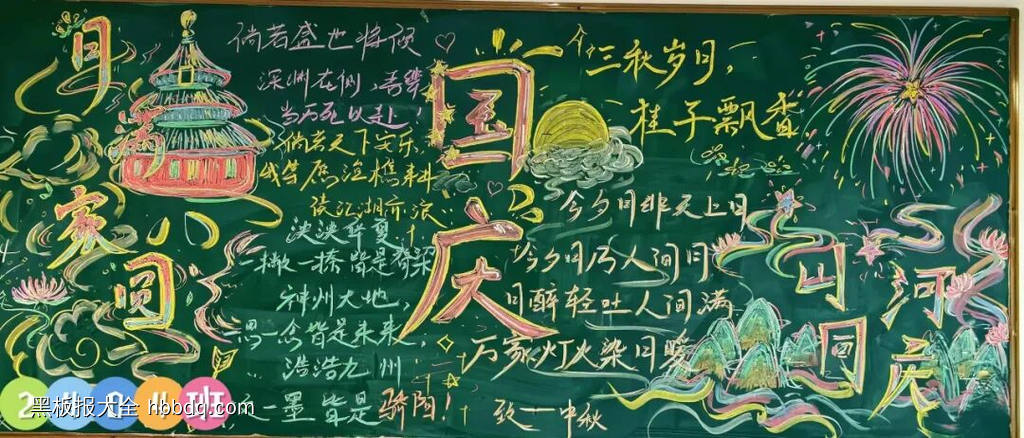 月
家
圆
倘若盛世将倾
深渊在侧,吾辈
当万死以赴!
倘若天下安乐,
我等愿渔樵耕
读江湖亦浪
泱泱华夏,
一撇一捺皆是脊梁
神州大地,
思一念皆是未来,
浩浩九州
一墨 皆是骄阳!
国
庆
三秋岁月,
桂子飘香
今夕月非天上月
今夕月乃人间月
月醉轻吐人间满
万家灯火染月暖
致—中秋
山
河
同
庆
班
黑板报大全 hbbdq.com